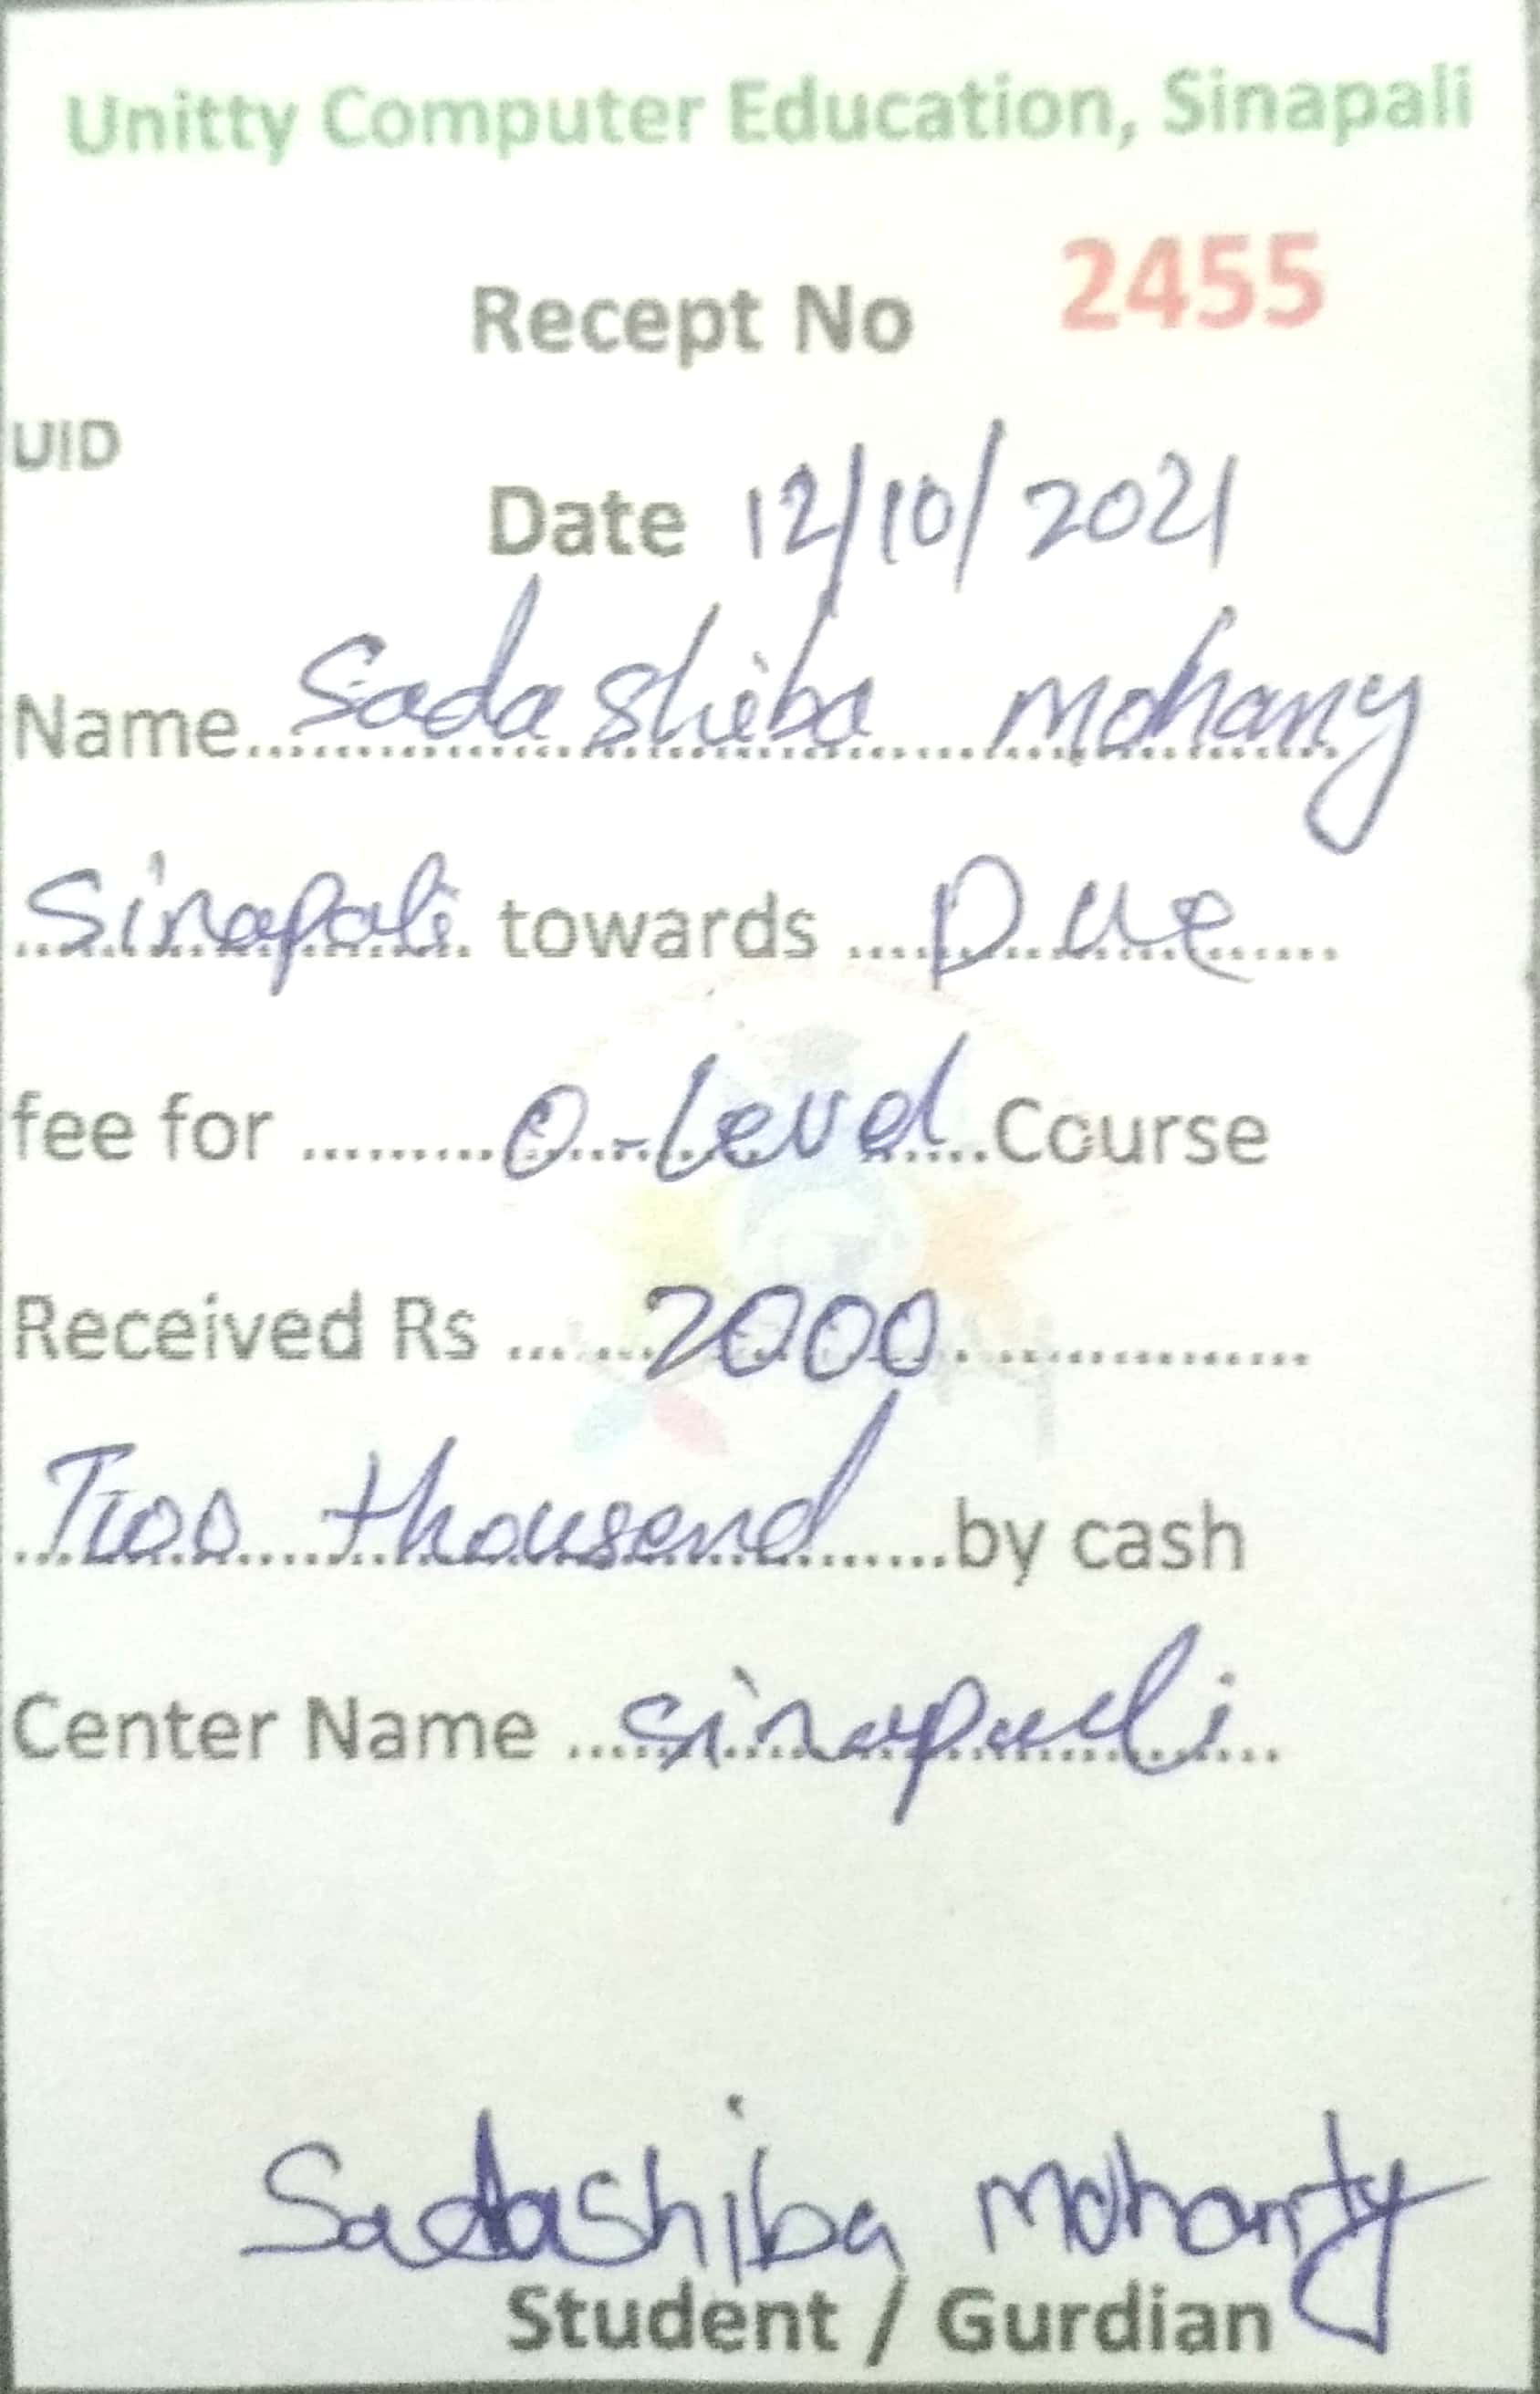 Unitty Computer Education, Sinapali
Recept No 2455
UID
Date 12/10/2021
Name Sadashiba Mohany
Sinapali towards Due
fee for O-Level Course
Received Rs 2000
Two thousend by cash
Center Name Sinapali
Sadashiba Mohanty
Student / Gurdian